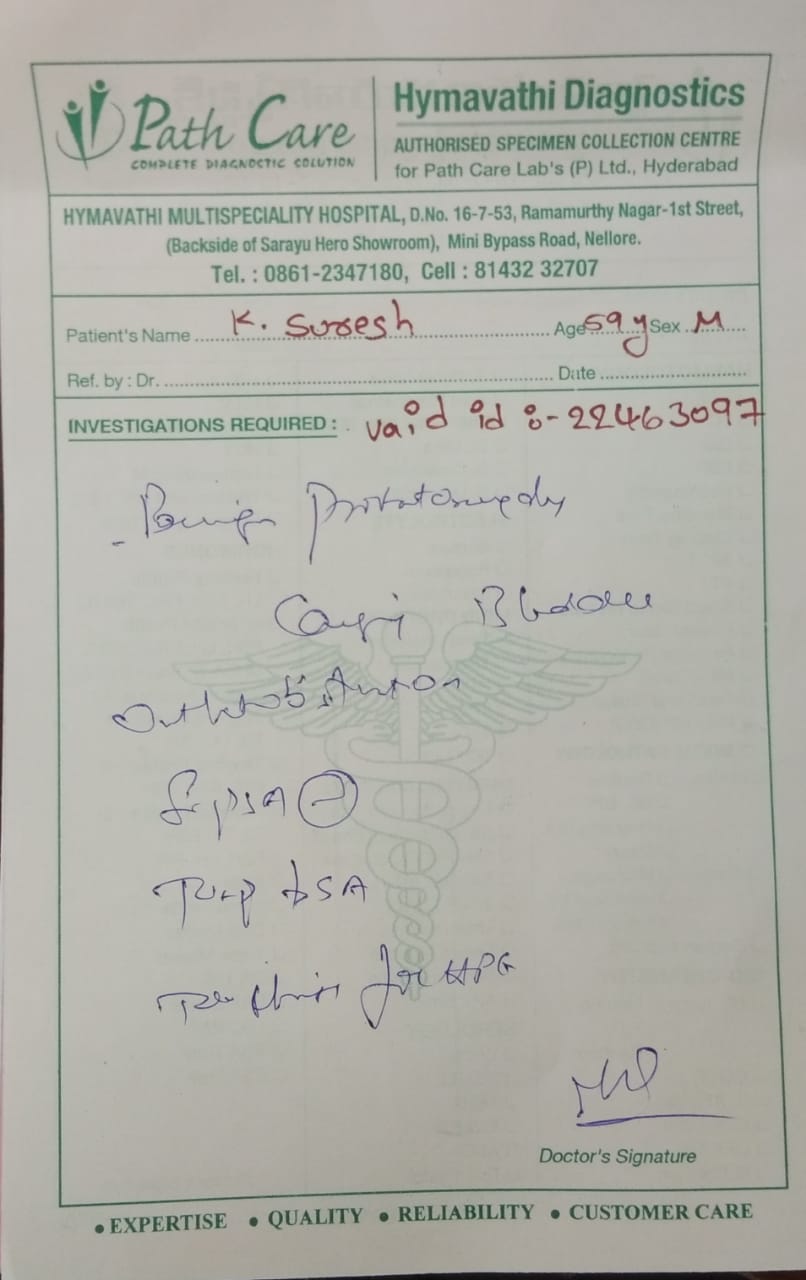 Path Care
COMPLETE DIAGNOCTIC COLUTION
Hymavathi Diagnostics
AUTHORISED SPECIMEN COLLECTION CENTRE
for Path Care Lab's (P) Ltd., Hyderabad
HYMAVATHI MULTISPECIALITY HOSPITAL, D.No. 16-7-53, Ramamurthy Nagar-1st Street,
(Backside of Sarayu Hero Showroom), Mini Bypass Road, Nellore.
Tel. : 0861-2347180, Cell : 81432 32707
Patient's Name K. Suresh Age 59 y Sex M
Ref. by : Dr. Date
INVESTIGATIONS REQUIRED : vaid id :- 22463097
- Benign
PSA
TURP SA
for HPE
Doctor's Signature
• EXPERTISE • QUALITY • RELIABILITY • CUSTOMER CARE